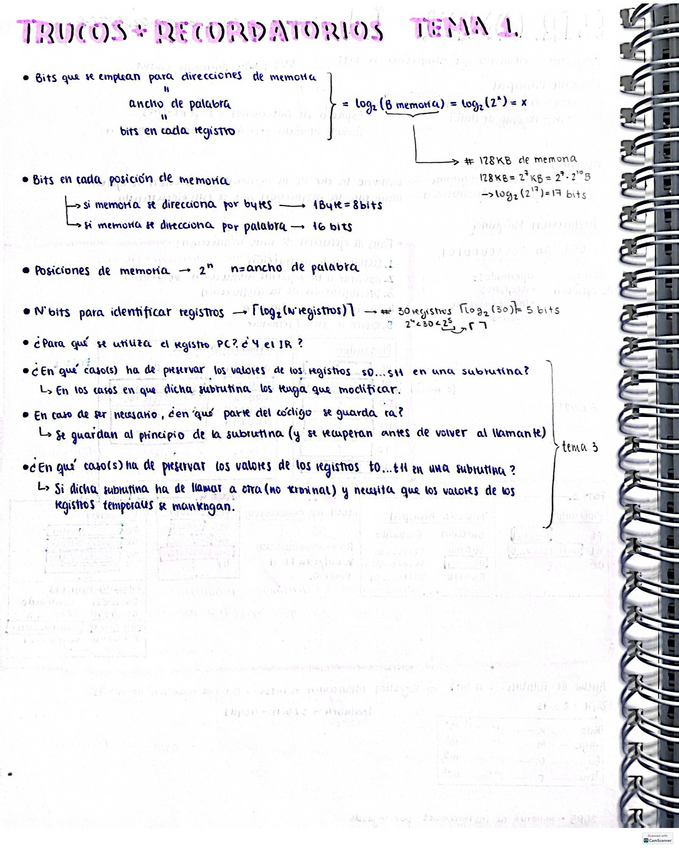 TRUCOS + RECORDATORIOS TEMA 1.
• Bits que se emplean para direcciones de memoria
"
ancho de palabra
"
bits en cada registro
= log₂ (B memoria) = log₂ (2ˣ) = x
# 128KB de memoria
128KB = 2⁷ KB = 2⁷ · 2¹⁰ B
→ log₂ (2¹⁷) = 17 bits
• Bits en cada posición de memoria
↳ si memoria se direcciona por bytes → 1Byte = 8bits
↳ si memoria se direcciona por palabra → 16 bits
• Posiciones de memoria → 2ⁿ n=ancho de palabra
• Nº bits para identificar registros → ⌈log₂ (nº registros)⌉ → # 30 registros ⌈log₂ (30)⌉ = 5 bits
2⁴ < 30 < 2⁵ ⌈ ⌉
• ¿Para qué se utiliza el registro PC? ¿Y el IR?
• ¿En qué caso(s) ha de preservar los valores de los registros s0...s11 en una subrutina?
↳ En los casos en que dicha subrutina los tenga que modificar.
• En caso de ser necesario, ¿en qué parte del código se guarda ra?
↳ Se guardan al principio de la subrutina (y se recuperan antes de volver al llamante)
tema 3
• ¿En qué caso(s) ha de preservar los valores de los registros t0...t11 en una subrutina?
↳ Si dicha subrutina ha de llamar a otra (no terminal) y necesita que los valores de los
registros temporales se mantengan.
Scanned with
CamScanner